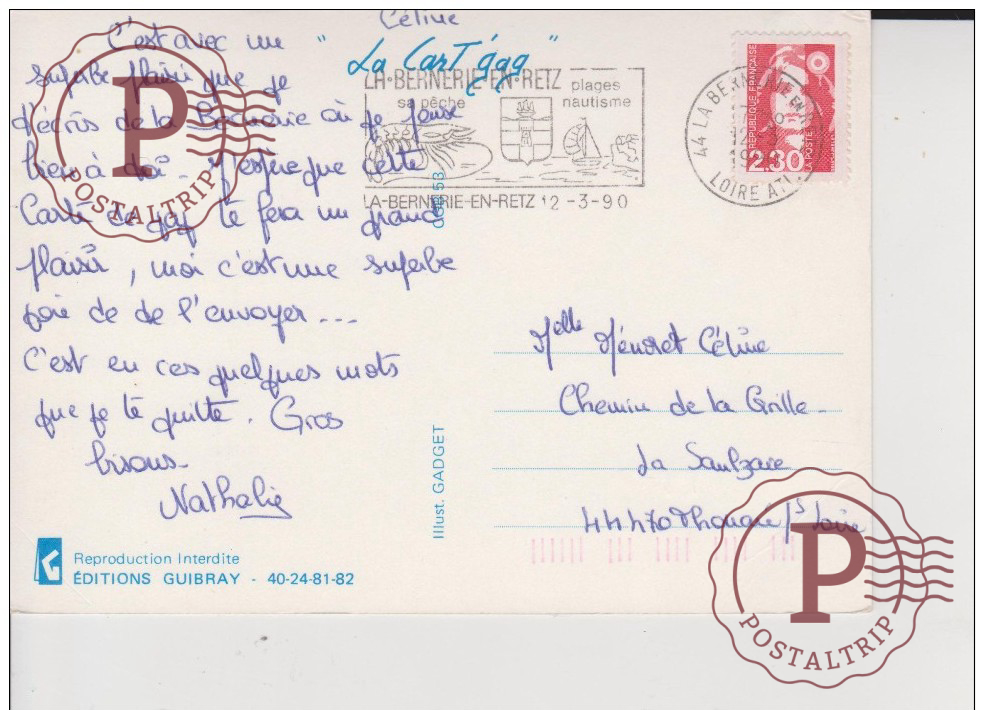 Céline
C'est avec un
superbe plaisir que je
t'écris de la Bernerie où je pense
bien à toi. J'espère que cette
Carte de gag te fera un grand
plaisir, moi c'est une superbe
joie de de l'envoyer ---
C'est en ces quelques mots
que je te quitte. Gros
bisous.
Nathalie
" La Cart'gag "
LA-BERNERIE-EN-RETZ
sa pêche
plages
nautisme
LA-BERNERIE-EN-RETZ 12 -3-90
44 LA BERNERIE EN
LOIRE ATL
RÉPUBLIQUE FRANÇAISE
LA POSTE
2,30
53
Illust. GADGET
Melle Ménoret Céline
Chemin de la Grille
La Saulzaie
44470 Thouaré s/ Loire
Reproduction Interdite
ÉDITIONS GUIBRAY - 40-24-81-82
P
POSTALTRIP
P
POSTALTRIP